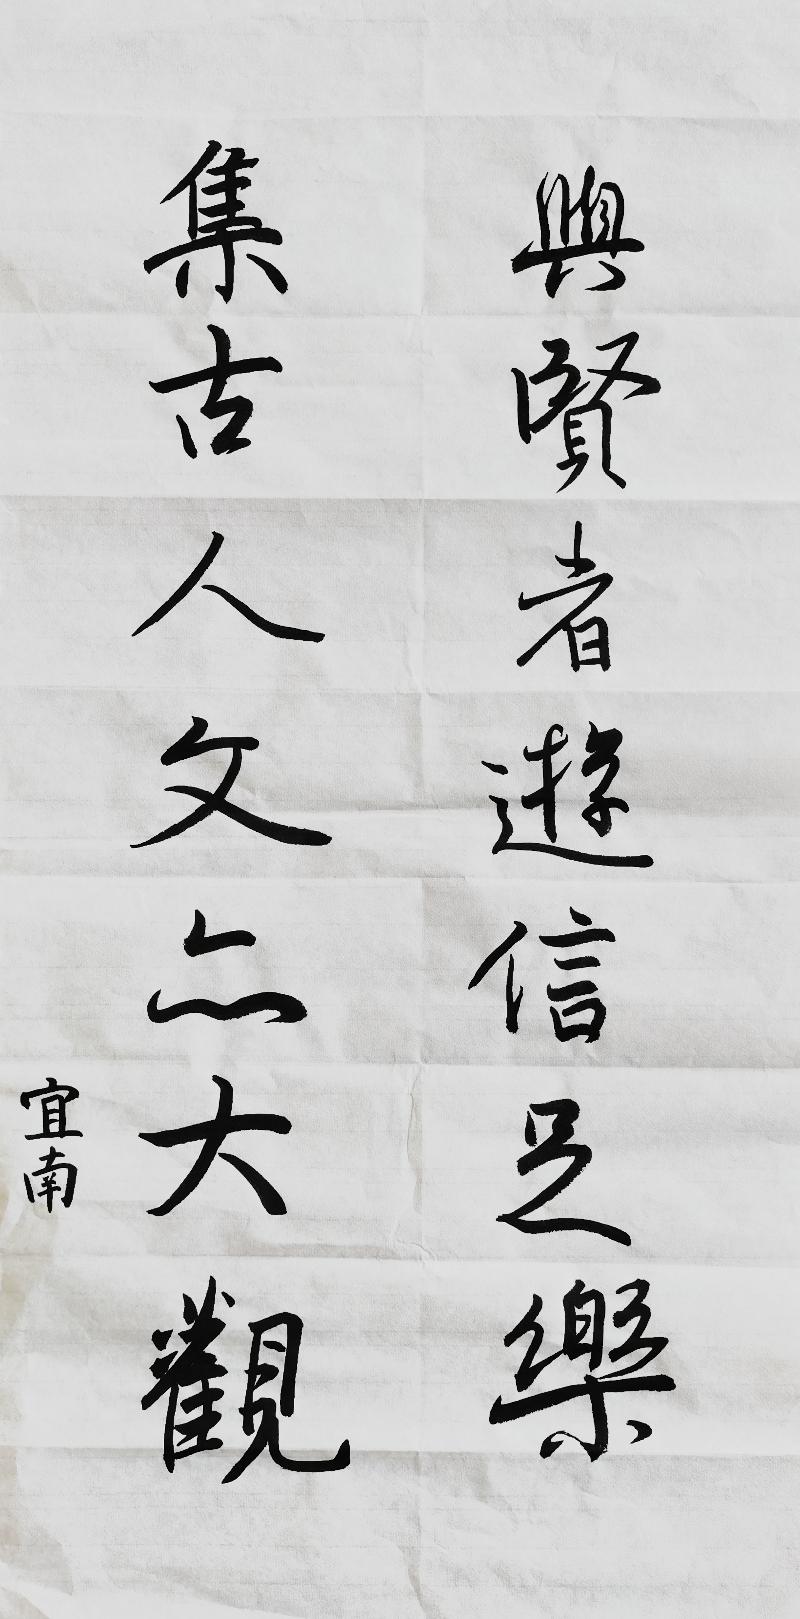 與賢者遊信足樂
集古人文亦大觀
宜南